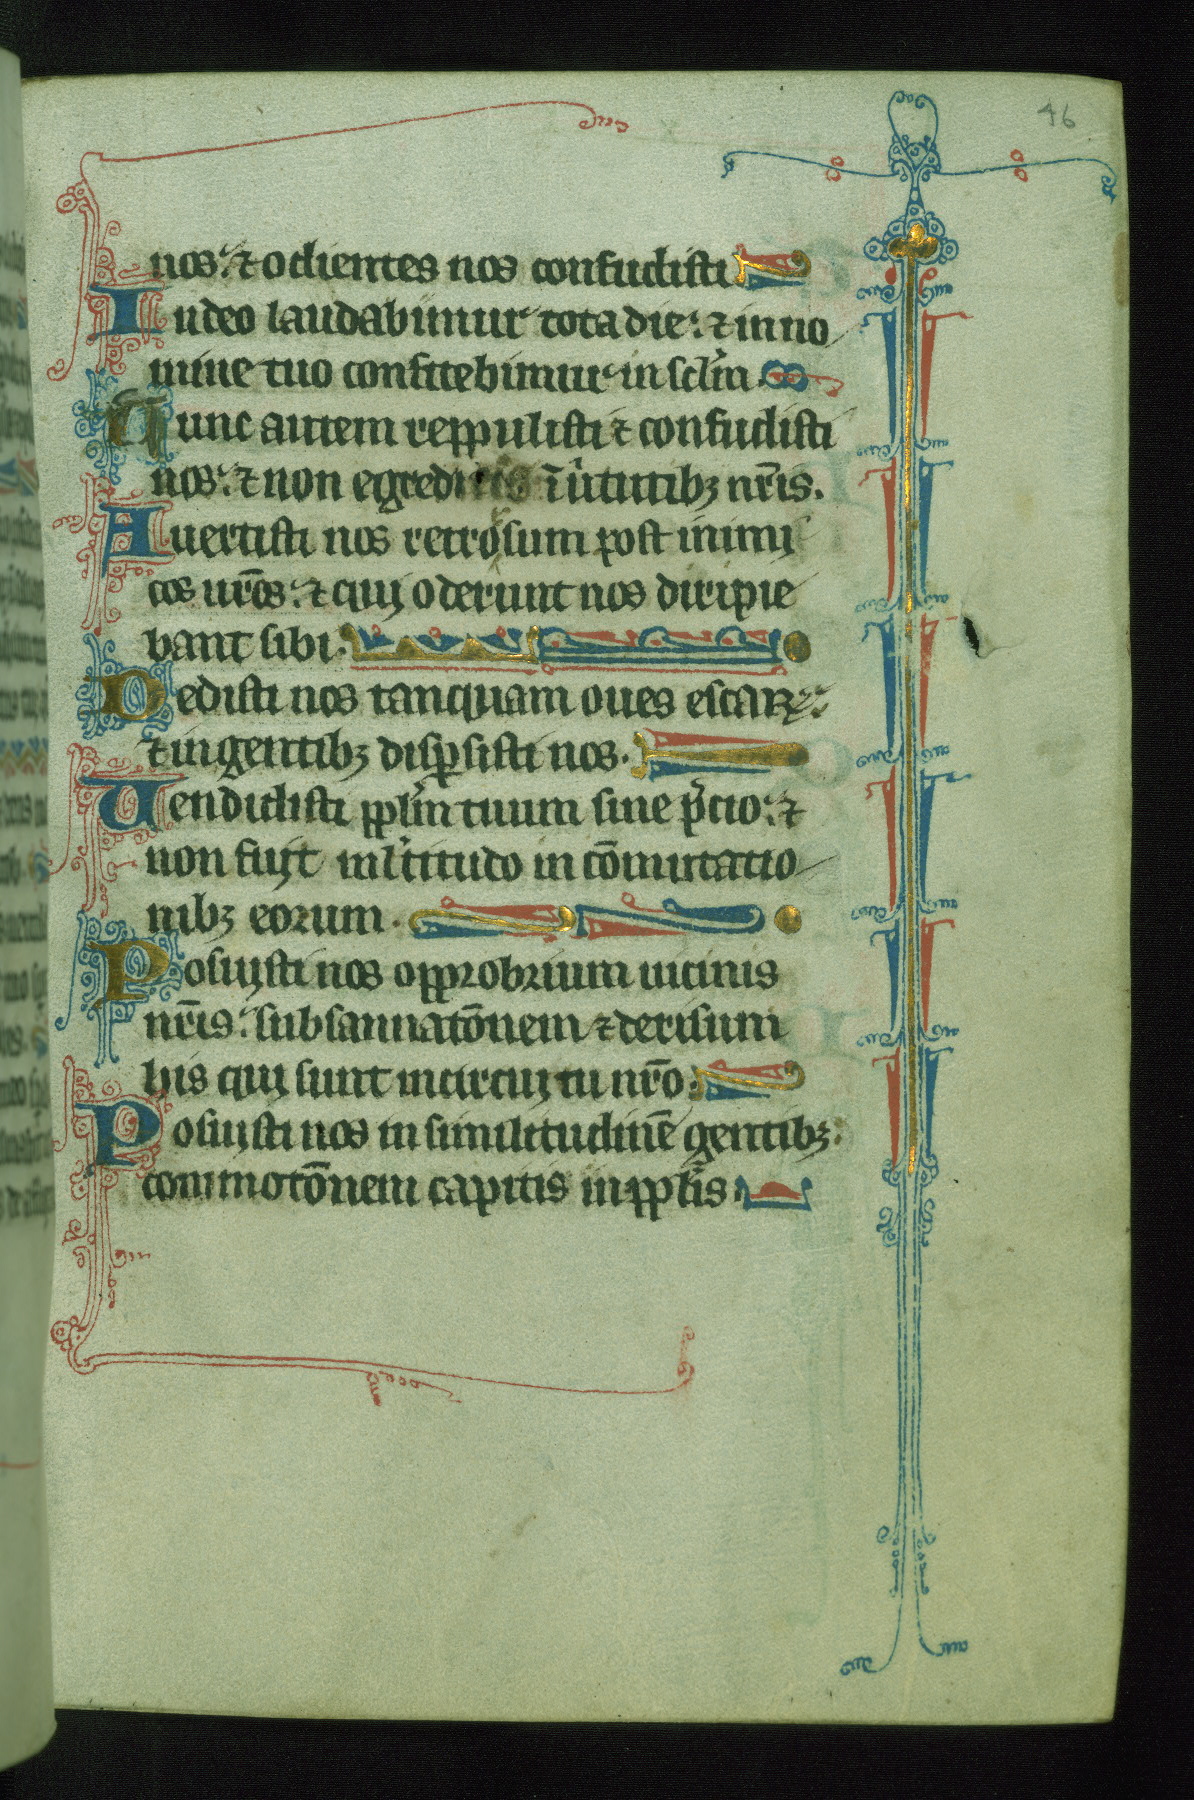 46
nos: ⁊ odientes nos confudisti
In deo laudabimur tota die: ⁊ in no
mine tuo confitebimur in sclm̄.
Nunc autem reppulisti ⁊ confudisti
nos: ⁊ non egredieris ī uirtutibꝫ nr̄is.
Auertisti nos retrosum post inimi
cos nr̄os: ⁊ qui oderunt nos diripie
bant sibi.
Dedisti nos tanquam oues escarꝝ:
⁊ in gentibꝫ disꝑsisti nos.
Uendidisti pplm̄ tuum sine p̄cio: ⁊
non fuit ml̄titudo in cōmutatio
nibꝫ eorum.
Posuisti nos opprobrium uicinis
nr̄is: subsannatōnem ⁊ derisum
his qui sunt in circuitu nr̄o.
Posuisti nos in similitudinē gentibꝫ:
commotōnem capitis in ppl̄is.